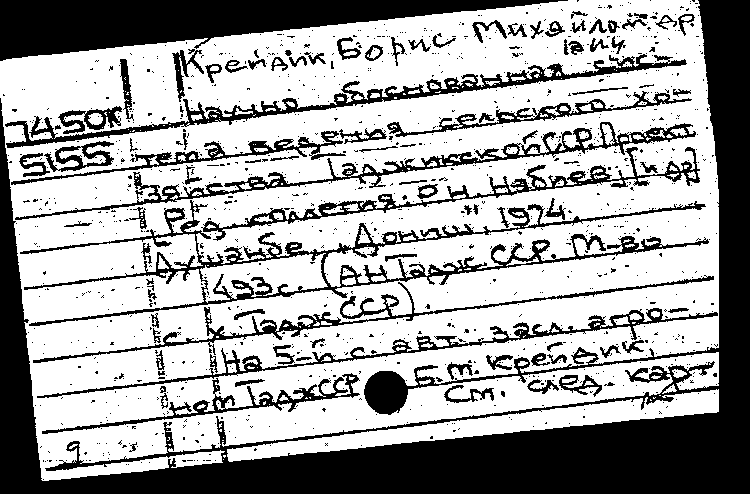 Крейдик, Борис Михайлович др
Научно обоснованная сис-
74-50К
5155 тема ведения сельского хо-
зяйства Таджикской ССР. Проект
Ред. коллегия: Р Н. Набиев, [и др]
Душанбе, „Дониш", 1974.
493 с. (АН Тадж ССР. М-во
с. х. Тадж ССР).
На 5-й с. авт.: засл. агро-
ном ТаджССР Б. М. Крейдик,
См. след. карт.
9